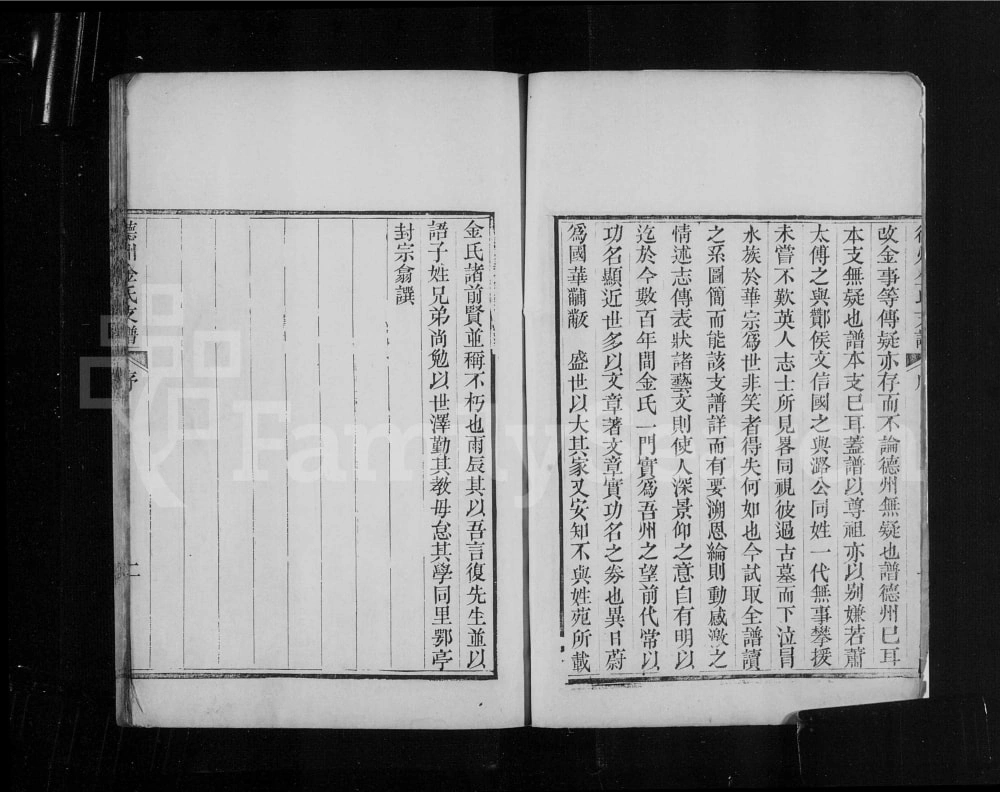 攷金事等傳疑亦存而不論德州無疑也譜德州已耳
本支無疑也譜本支已耳蓋譜以尊祖亦以別嫌若蕭
太傅之與酇侯文信國之與潞公同姓一代無事攀援
未嘗不歎英人志士所見畧同視彼過古墓而下泣冒
水族於華宗爲世非笑者得失何如也今試取全譜讀
之系圖簡而能該支譜詳而有要溯恩綸則動感激之
情述志傳表狀諸藝文則使人深景仰之意自有明以
迄於今數百年間金氏一門實爲吾州之望前代常以
功名顯近世多以文章著文章實功名之券也異日蔚
爲國華黼黻　盛世以大其家又安知不與姓苑所載
金氏諸前賢並稱不朽也雨辰其以吾言復先生並以
語子姓兄弟尚勉以世澤勤其教毋怠其學同里鄂亭
封宗翕譔
德州金氏支譜
序
二
FamilySearch